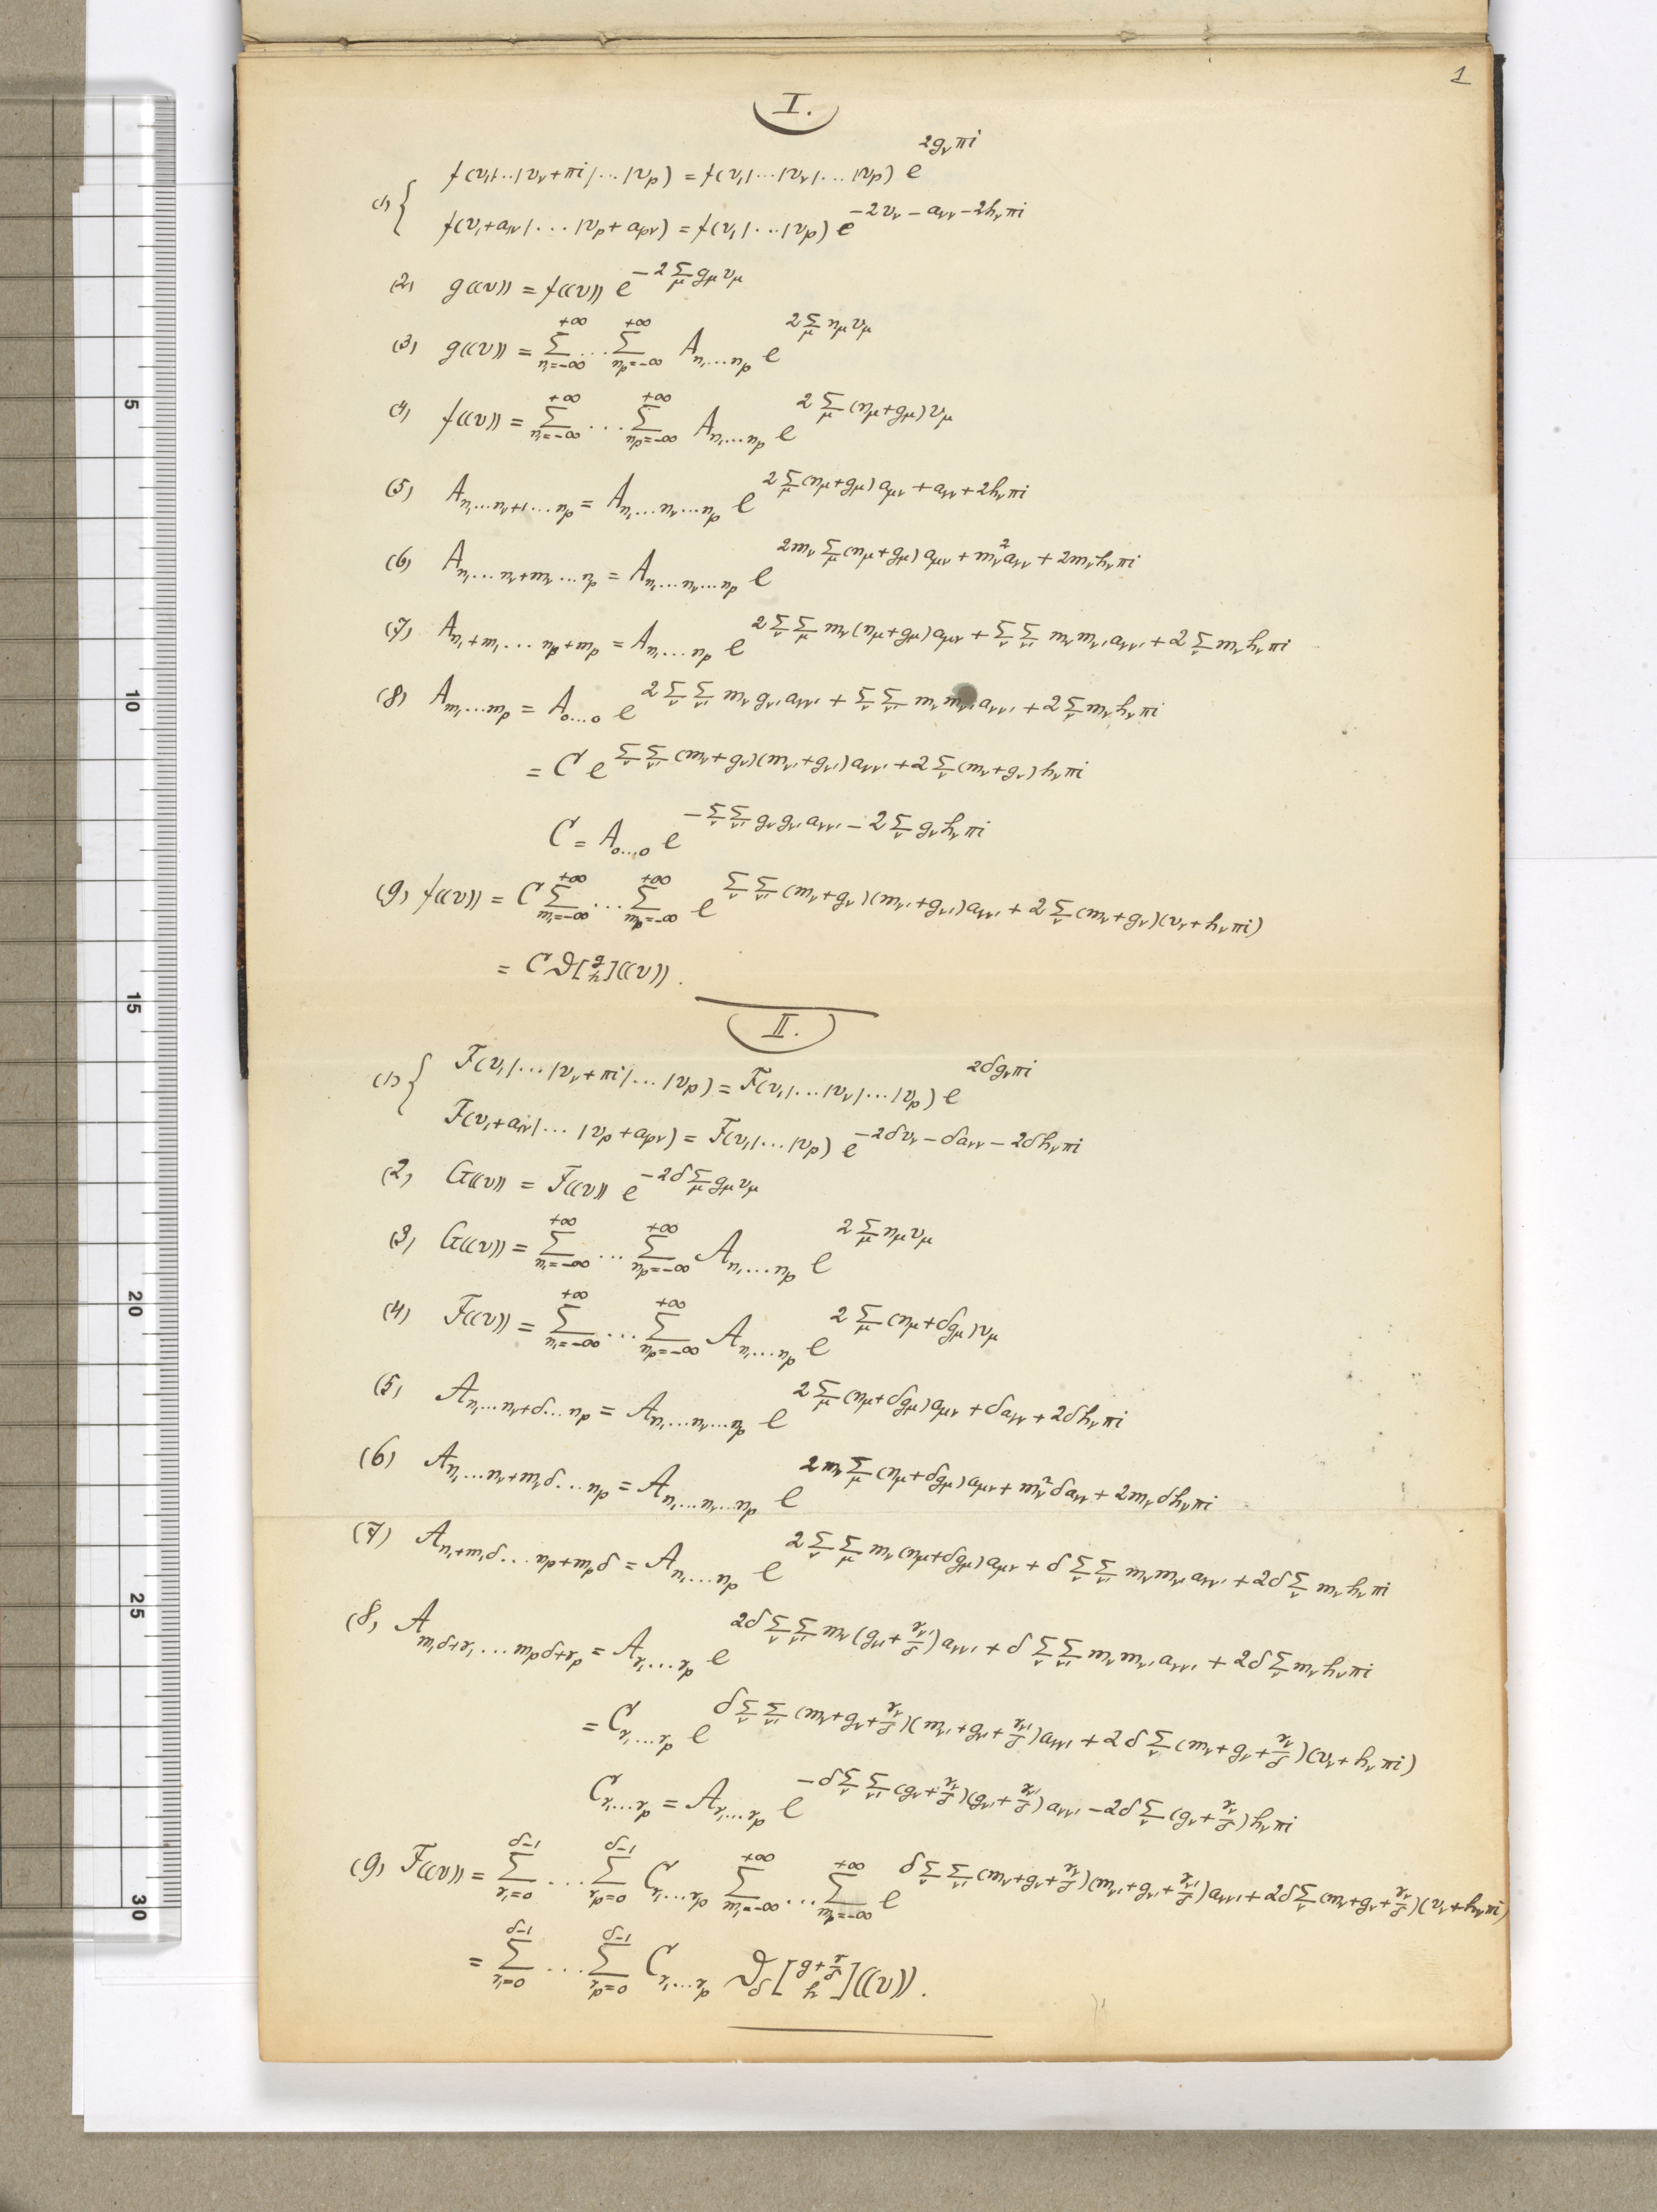 1
I.
(1) { f(v₁|...|v_ν+πi|...|v_p) = f(v₁|...|v_ν|...|v_p) e^{2g_νπi}
f(v₁+a_{1ν}|...|v_p+a_{pν}) = f(v₁|...|v_p) e^{-2v_ν-a_{νν}-2h_νπi}
(2) g((v)) = f((v)) e^{-2 Σ_μ g_μ v_μ}
(3) g((v)) = Σ_{n₁=-∞}^{+∞} ... Σ_{n_p=-∞}^{+∞} A_{n₁...n_p} e^{2 Σ_μ n_μ v_μ}
(4) f((v)) = Σ_{n₁=-∞}^{+∞} ... Σ_{n_p=-∞}^{+∞} A_{n₁...n_p} e^{2 Σ_μ (n_μ+g_μ) v_μ}
(5) A_{n₁...n_ν+1...n_p} = A_{n₁...n_ν...n_p} e^{2 Σ_μ (n_μ+g_μ) a_{μν} + a_{νν} + 2h_νπi}
(6) A_{n₁...n_ν+m_ν...n_p} = A_{n₁...n_ν...n_p} e^{2m_ν Σ_μ (n_μ+g_μ) a_{μν} + m_ν² a_{νν} + 2m_νh_νπi}
(7) A_{n₁+m₁...n_p+m_p} = A_{n₁...n_p} e^{2 Σ_ν Σ_μ m_ν(n_μ+g_μ) a_{μν} + Σ_ν Σ_ν' m_ν m_ν' a_{νν'} + 2 Σ_ν m_νh_νπi}
(8) A_{m₁...m_p} = A_{0...0} e^{2 Σ_ν Σ_ν' m_ν g_ν' a_{νν'} + Σ_ν Σ_ν' m_ν m_ν' a_{νν'} + 2 Σ_ν m_νh_νπi}
= C e^{Σ_ν Σ_ν' (m_ν+g_ν)(m_ν'+g_ν') a_{νν'} + 2 Σ_ν (m_ν+g_ν) h_νπi}
C = A_{0...0} e^{-Σ_ν Σ_ν' g_ν g_ν' a_{νν'} - 2 Σ_ν g_νh_νπi}
(9) f((v)) = C Σ_{m₁=-∞}^{+∞} ... Σ_{m_p=-∞}^{+∞} e^{Σ_ν Σ_ν' (m_ν+g_ν)(m_ν'+g_ν') a_{νν'} + 2 Σ_ν (m_ν+g_ν)(v_ν+h_νπi)}
= C ϑ[g h]((v)).
II.
(1) { F(v₁|...|v_ν+πi|...|v_p) = F(v₁|...|v_ν|...|v_p) e^{2δg_νπi}
F(v₁+a_{1ν}|...|v_p+a_{pν}) = F(v₁|...|v_p) e^{-2δv_ν-δa_{νν}-2δh_νπi}
(2) G((v)) = F((v)) e^{-2δ Σ_μ g_μ v_μ}
(3) G((v)) = Σ_{n₁=-∞}^{+∞} ... Σ_{n_p=-∞}^{+∞} A_{n₁...n_p} e^{2 Σ_μ n_μ v_μ}
(4) F((v)) = Σ_{n₁=-∞}^{+∞} ... Σ_{n_p=-∞}^{+∞} A_{n₁...n_p} e^{2 Σ_μ (n_μ+δg_μ) v_μ}
(5) A_{n₁...n_ν+δ...n_p} = A_{n₁...n_ν...n_p} e^{2 Σ_μ (n_μ+δg_μ) a_{μν} + δa_{νν} + 2δh_νπi}
(6) A_{n₁...n_ν+m_νδ...n_p} = A_{n₁...n_ν...n_p} e^{2m_ν Σ_μ (n_μ+δg_μ) a_{μν} + m_ν² δa_{νν} + 2m_νδh_νπi}
(7) A_{n₁+m₁δ...n_p+m_pδ} = A_{n₁...n_p} e^{2 Σ_ν Σ_μ m_ν(n_μ+δg_μ) a_{μν} + δ Σ_ν Σ_ν' m_ν m_ν' a_{νν'} + 2δ Σ_ν m_νh_νπi}
(8) A_{m₁δ+r₁...m_pδ+r_p} = A_{r₁...r_p} e^{2δ Σ_ν Σ_ν' m_ν(g_ν'+r_ν'/δ) a_{νν'} + δ Σ_ν Σ_ν' m_ν m_ν' a_{νν'} + 2δ Σ_ν m_νh_νπi}
= C_{r₁...r_p} e^{δ Σ_ν Σ_ν' (m_ν+g_ν+r_ν/δ)(m_ν'+g_ν'+r_ν'/δ) a_{νν'} + 2δ Σ_ν (m_ν+g_ν+r_ν/δ)(v_ν+h_νπi)}
C_{r₁...r_p} = A_{r₁...r_p} e^{-δ Σ_ν Σ_ν' (g_ν+r_ν/δ)(g_ν'+r_ν'/δ) a_{νν'} - 2δ Σ_ν (g_ν+r_ν/δ) h_νπi}
(9) F((v)) = Σ_{r₁=0}^{δ-1} ... Σ_{r_p=0}^{δ-1} C_{r₁...r_p} Σ_{m₁=-∞}^{+∞} ... Σ_{m_p=-∞}^{+∞} e^{δ Σ_ν Σ_ν' (m_ν+g_ν+r_ν/δ)(m_ν'+g_ν'+r_ν'/δ) a_{νν'} + 2δ Σ_ν (m_ν+g_ν+r_ν/δ)(v_ν+h_νπi)}
= Σ_{r₁=0}^{δ-1} ... Σ_{r_p=0}^{δ-1} C_{r₁...r_p} ϑ_δ[g+r/δ h]((v)).
5
10
15
20
25
30